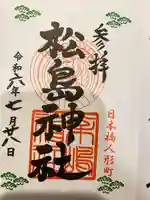 参拝
日本橋人形町
松島神社
令和六年七月廿八日